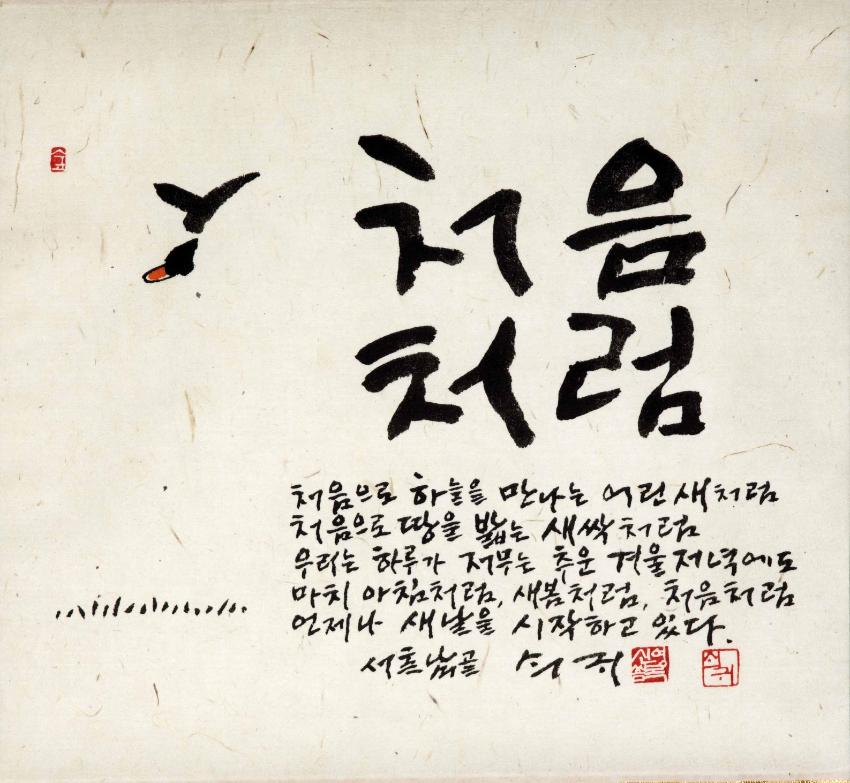 처음
처럼
처음으로 하늘을 만나는 어린 새처럼
처음으로 땅을 밟는 새싹처럼
우리는 하루가 저무는 추운 겨울 저녁에도
마치 아침처럼, 새봄처럼, 처음처럼
언제나 새날을 시작하고 있다.
쇠귀